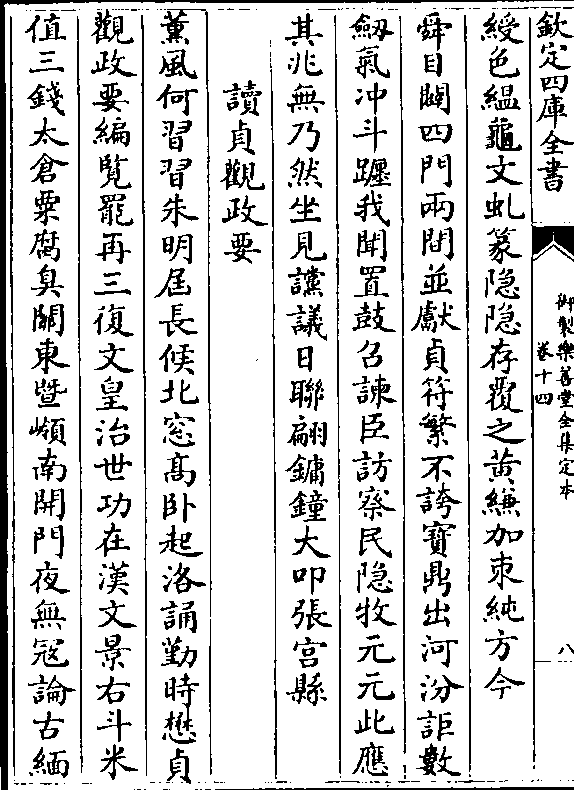 欽定四庫全書
御製樂善堂全集定本
卷十四
八
綬色緼龜文虬篆隠隠存覆之黄縑加朿純方今
舜目闢四門兩閣並獻貞符繁不誇寶鼎出河汾詎數
劔氣冲斗躔我聞置鼓召諫臣訪察民隐牧元元此應
其兆無乃然坐見讜議日聯翩鏞鐘大叩張宫縣
讀貞觀政要
薰風何習習朱明届長候北窓髙卧起洛誦勤時懋貞
觀政要編覧罷再三復文皇治世功在漢文景右斗米
值三錢太倉粟腐臭關東暨嶺南開門夜無冦論古緬